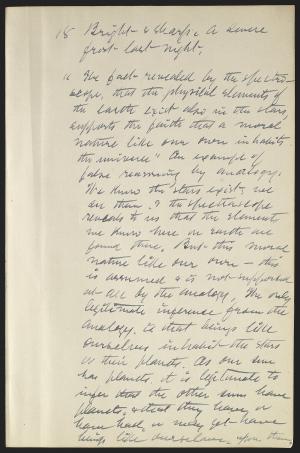 18 Bright & sharp. A severe
frost last night.
"The fact revealed by the spectro-
scope, that the physical elements of
the earth exist also in the stars,
supports the faith that a moral
nature like our own inhabits
the universe" An example of
false reasoning by analogy.
We know the stars exist, we
see them, & the spectroscope
reveals to us that the elements
we know here on earth are
found there. But this moral
nature like our own - this
is assumed & is not supported
at all by the analogy. The only
legitimate inference from the
analogy, is that beings like
ourselves inhabit the stars
or their planets. As our sun
has planets, it is legitimate to
infer that the other suns have
planets, & that they have, or
have had, or may yet have
beings like ourselves, upon them